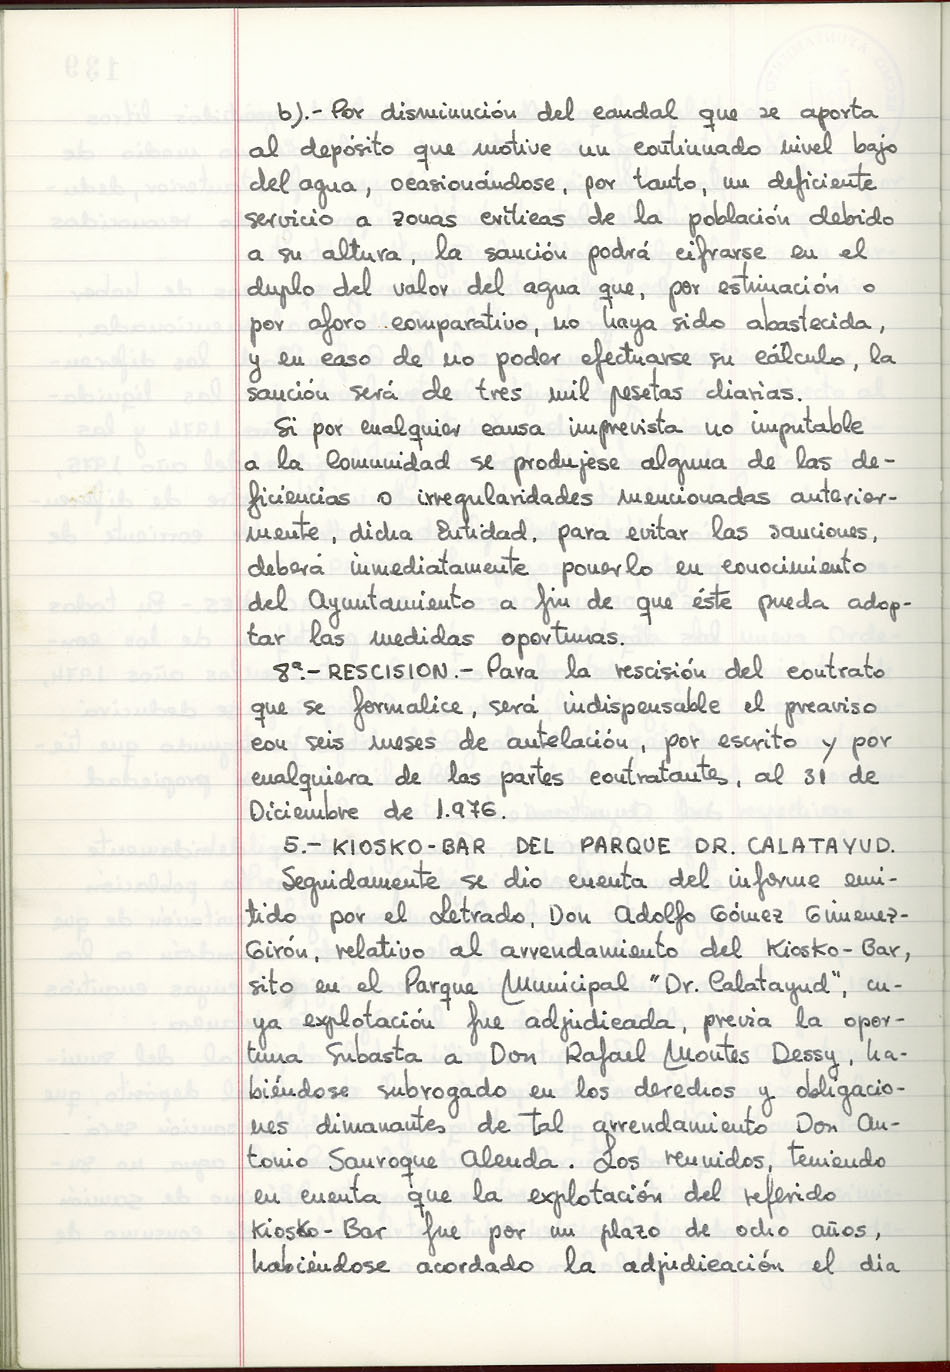 b).- Por disminución del caudal que se aporta
al depósito que motive un continuado nivel bajo
del agua, ocasionándose, por tanto, un deficiente
servicio a zonas críticas de la población debido
a su altura, la sanción podrá cifrarse en el
duplo del valor del agua que, por estimación o
por aforo comparativo, no haya sido abastecida,
y en caso de no poder efectuarse su cálculo, la
sanción será de tres mil pesetas diarias.
Si por cualquier causa imprevista no imputable
a la Comunidad se produjese alguna de las de-
ficiencias o irregularidades mencionadas anterior-
mente, dicha Entidad, para evitar las sanciones,
deberá inmediatamente ponerlo en conocimiento
del Ayuntamiento a fin de que éste pueda adop-
tar las medidas oportunas.
8ª.- RESCISION.- Para la rescisión del contrato
que se formalice, será indispensable el preaviso
con seis meses de antelación, por escrito y por
cualquiera de las partes contratantes, al 31 de
Diciembre de 1.976.
5.- KIOSKO-BAR DEL PARQUE DR. CALATAYUD.
Seguidamente se dio cuenta del informe emi-
tido por el Letrado, Don Adolfo Gómez Gimenez-
Girón, relativo al arrendamiento del Kiosko-Bar,
sito en el Parque Municipal "Dr. Calatayud", cu-
ya explotación fue adjudicada, previa la opor-
tuna Subasta a Don Rafael Montes Dessy, ha-
biéndose subrogado en los derechos y obligacio-
nes dimanantes de tal arrendamiento Don An-
tonio Sanroque Alenda. Los reunidos, teniendo
en cuenta que la explotación del referido
Kiosko-Bar fue por un plazo de ocho años,
habiéndose acordado la adjudicación el dia